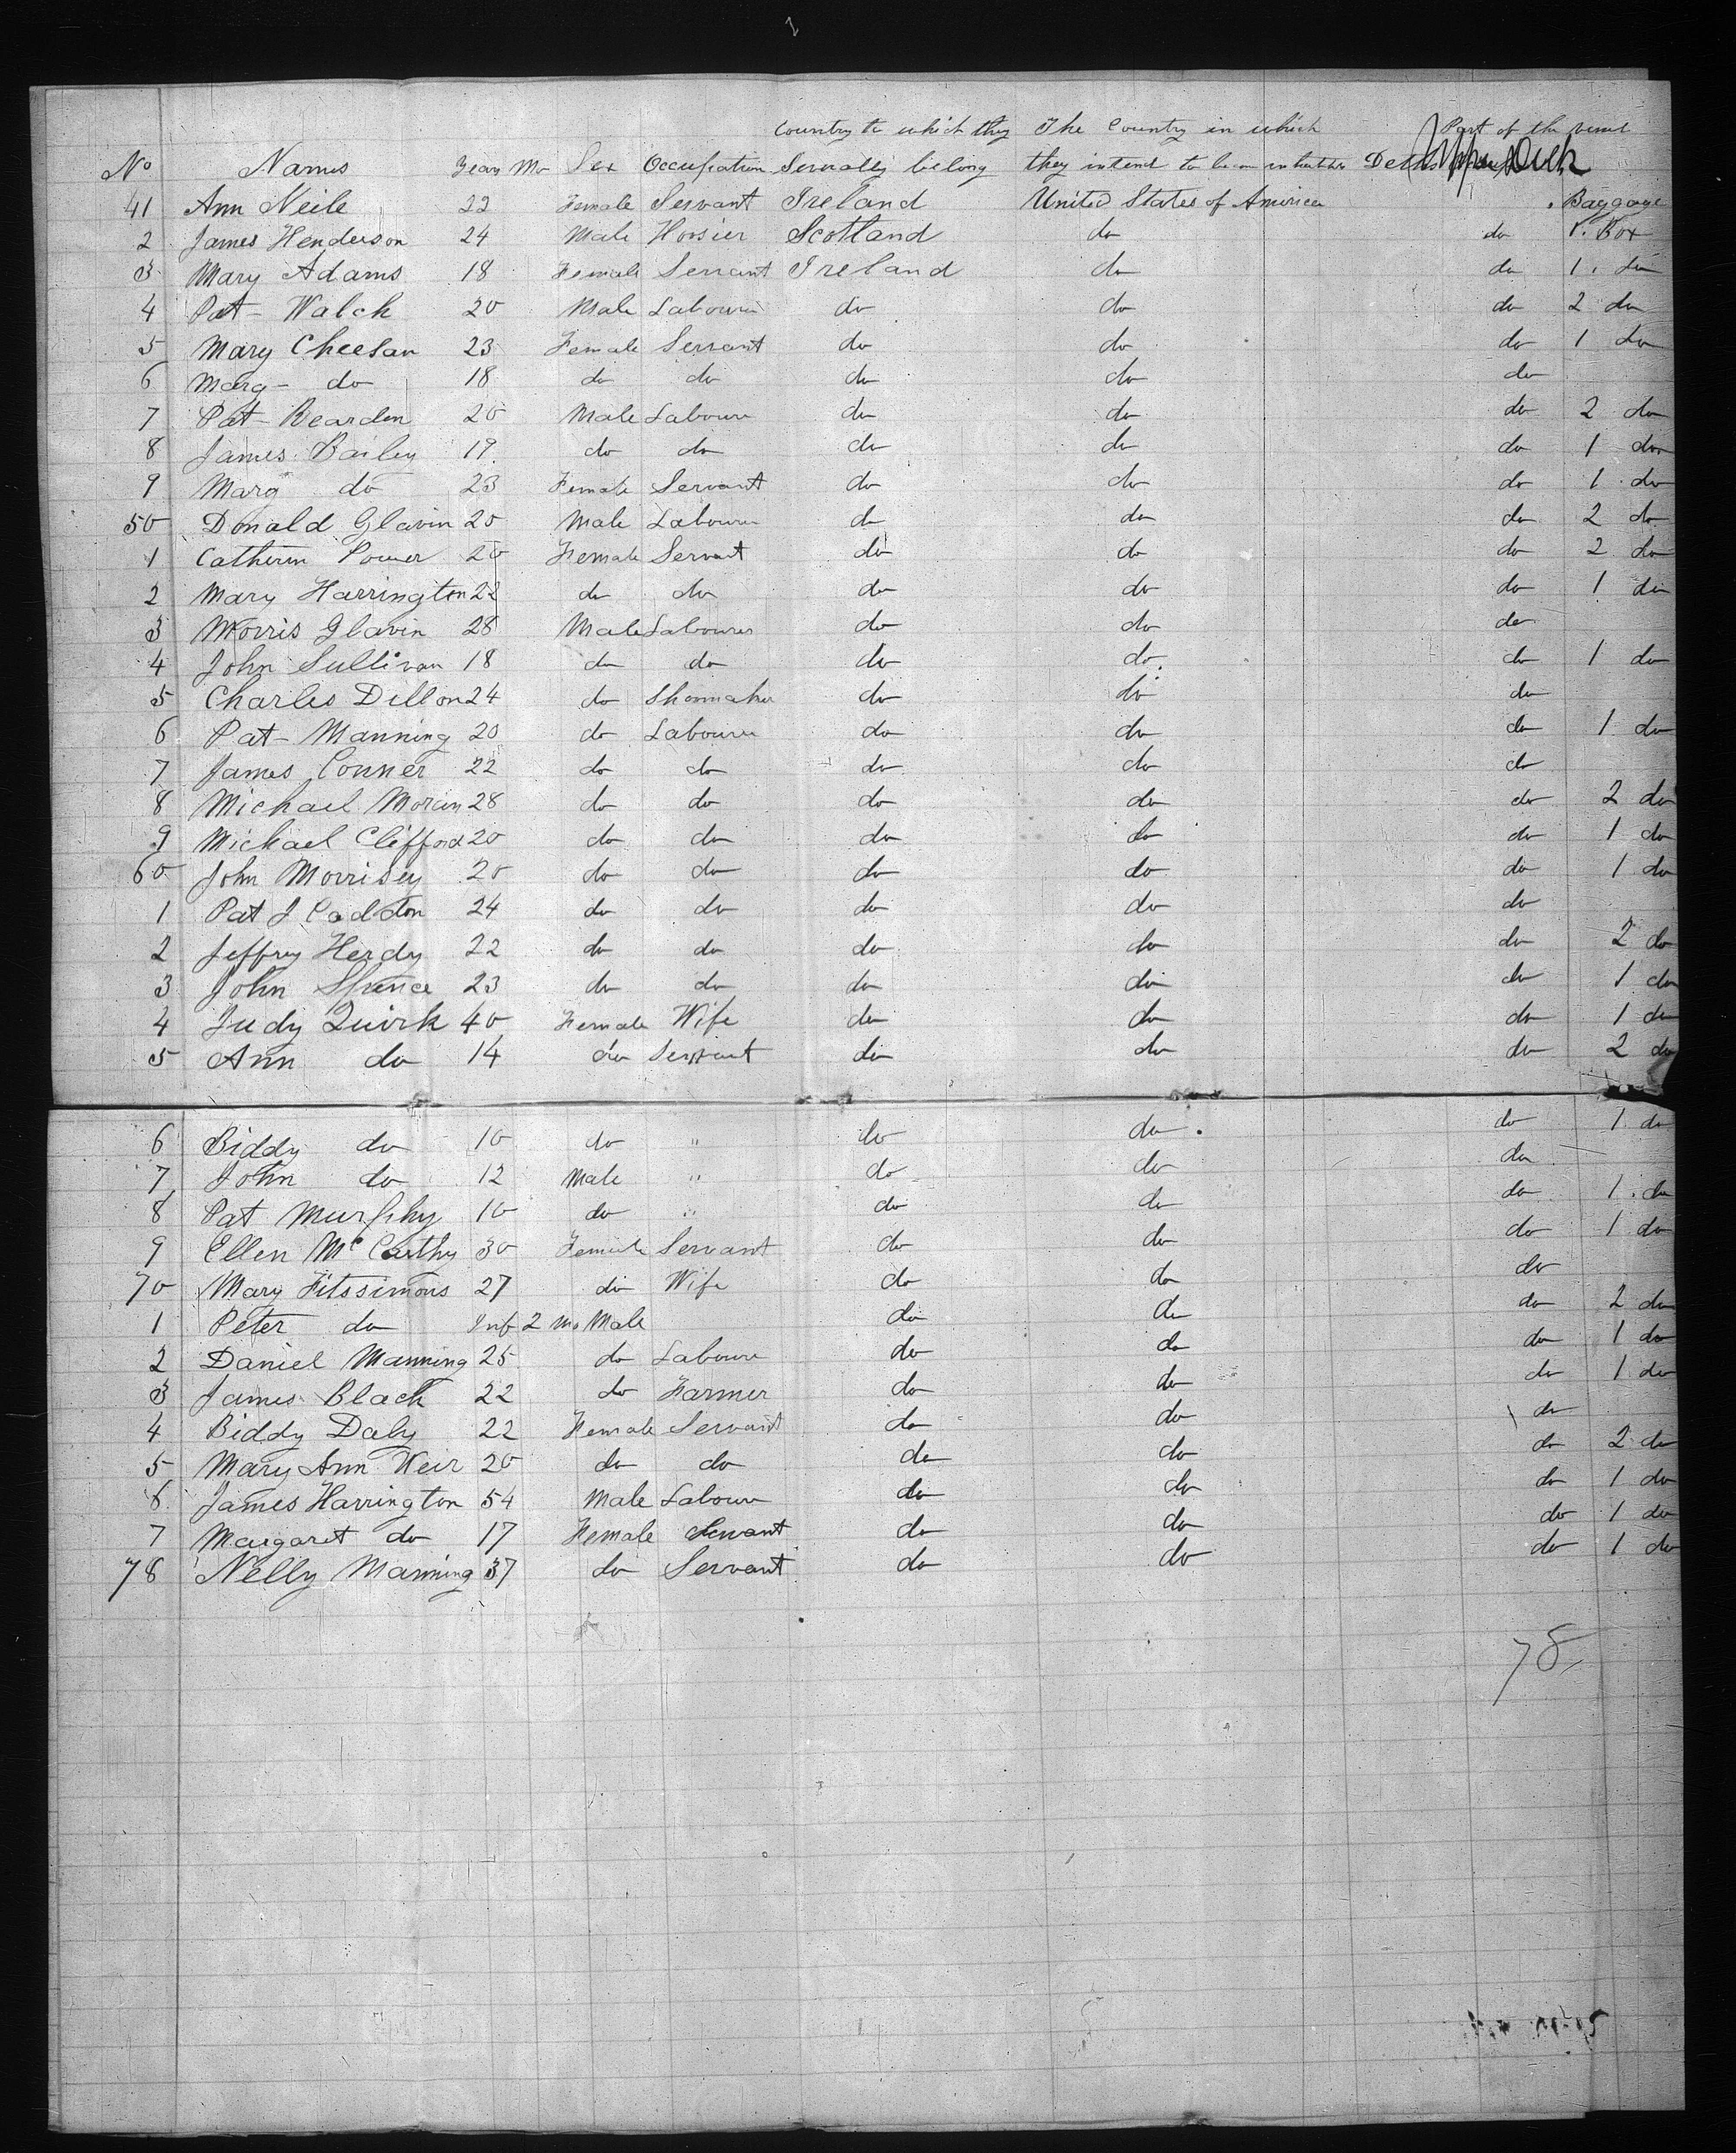 Country to which they The Country in which Part of the vessel
No Names Years Mo Sex Occupation Severally belong they intend to become inhabitants Deaths Upper Deck
41 Ann Neile 22 Female Servant Ireland United States of America Baggage
2 James Henderson 24 Male Hosier Scotland do do 1. Box
3 Mary Adams 18 Female Servant Ireland do do 1. do
4 Pat- Walch 20 Male Labourer do do do 2 do
5 Mary Cheesan 23 Female Servant do do do 1 do
6 Marg- do 18 do do do do do
7 Pat- Reardon 20 Male Labourer do do do 2 do
8 James Bailey 19 do do do do do 1 do
9 Marg do 23 Female Servant do do do 1 do
50 Donald Glavin 20 Male Labourer do do do 2 do
1 Catherin Power 20 Female Servant do do do 2 do
2 Mary Harrington 22 do do do do do 1 do
3 Morris Glavin 28 Male Labourer do do do
4 John Sullivan 18 do do do do do 1 do
5 Charles Dillon 24 do Shoemaker do do do
6 Pat- Manning 20 do Labourer do do do 1 do
7 James Conner 22 do do do do do
8 Michael Moran 28 do do do do do 2 do
9 Michael Clifford 20 do do do do do 1 do
60 John Morrisey 20 do do do do do 1 do
1 Pat J Caddon 24 do do do do do
2 Jeffry Herdy 22 do do do do do 2 do
3 John Spence 23 do do do do do 1 do
4 Judy Quirk 40 Female Wife do do do 1 do
5 Ann do 14 do Servant do do do 2 do
6 Biddy do 10 do " do do do 1 do
7 John do 12 Male " do do do
8 Pat Murphy 10 do " do do do 1. do
9 Ellen McCarthy 30 Female Servant do do do 1 do
70 Mary Fitssimons 27 do Wife do do do
1 Peter do Inf 2 Mo Male do do do 2 do
2 Daniel Manning 25 do Labourer do do do 1 do
3 James Black 22 do Farmer do do do 1 do
4 Biddy Daly 22 Female Servant do do do
5 Mary Ann Weir 20 do do do do do 2 do
6 James Harrington 54 Male Labourer do do do 1 do
7 Margaret do 17 Female Servant do do do 1 do
78 Nelly Manning 37 do Servant do do do 1 do
78